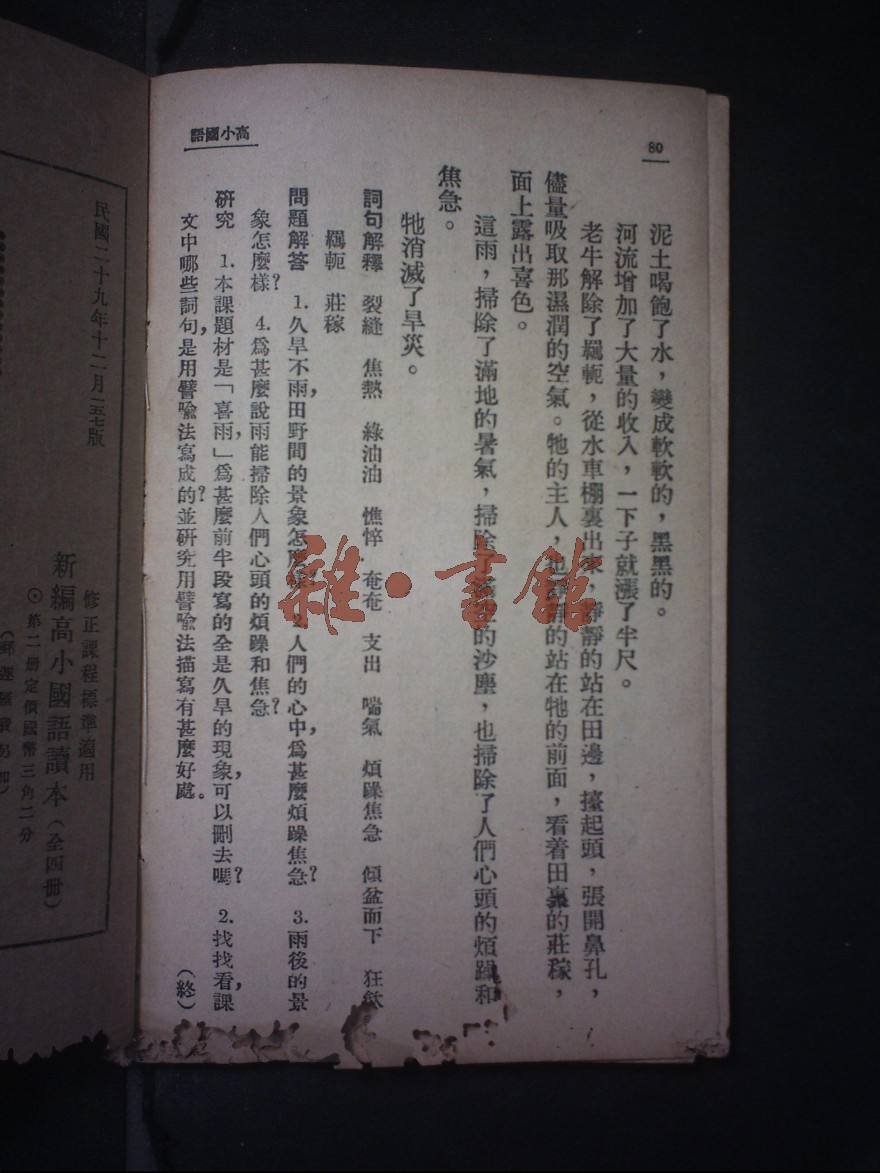 80
高小國語
泥土喝飽了水，變成軟軟的，黑黑的。
河流增加了大量的收入，一下子就漲了半尺。
老牛解除了羈軛，從水車棚裏出來，靜靜的站在田邊，擡起頭，張開鼻孔，
儘量吸取那濕潤的空氣。牠的主人，也靜靜的站在牠的前面，看着田裏的莊稼，
面上露出喜色。
這雨，掃除了滿地的暑氣，掃除了的沙塵，也掃除了人們心頭的煩躁和
焦急。
牠消滅了旱災。
詞句解釋　裂縫　焦熱　綠油油　憔悴　奄奄　支出　喘氣　煩躁焦急　傾盆而下　狂飲
羈軛　莊稼
問題解答　1.久旱不雨，田野間的景象怎麼樣？2.人們的心中，爲甚麼煩躁焦急？　3.雨後的景
象怎麼樣？　4.爲甚麼說雨能掃除人們心頭的煩躁和焦急？
研究　1.本課題材是「喜雨」，爲甚麼前半段寫的全是久旱的現象，可以刪去嗎？　2.找找看，課
文中哪些詞句，是用譬喻法寫成的？並研究用譬喻法描寫有甚麼好處。
（終）
雜·書館
民國二十九年十二月一五七版
修正課程標準適用
新編高小國語讀本（全四冊）
⊙第二册定價國幣三角二分
（郵運匯費另加）